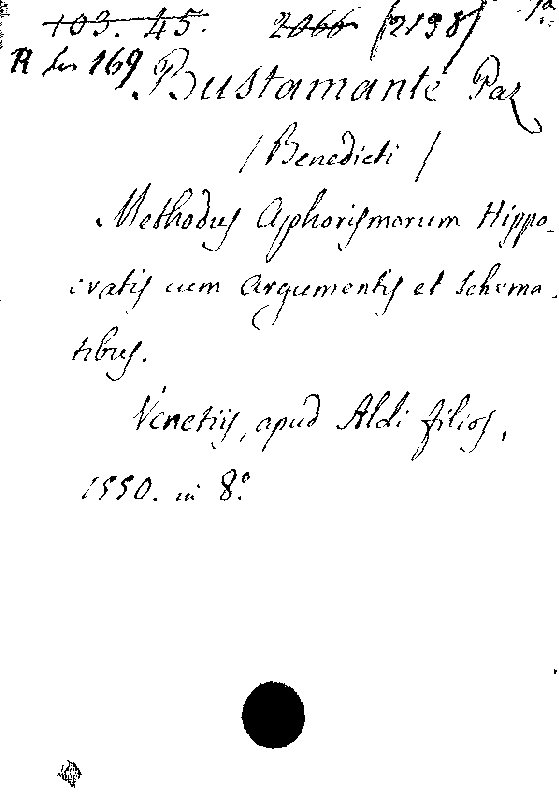 103. 45. 2066 (2198)
R 169
Bustamante Paz
(Benedicti)
Methodus Aphorismorum Hippo-
cratis cum Argumentis et Schema-
tibus.
Venetiis, apud Aldi filios,
1550. in 8º